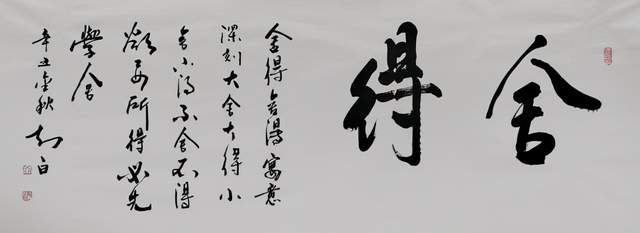 舍得
舍得舍得寓意
深刻大舍大得小
舍小得不舍不得
欲要所得必先
學舍
辛丑金秋知白